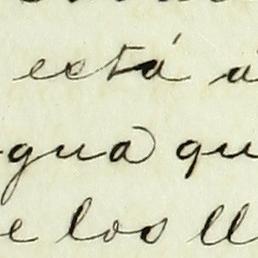 está á
gua qu
e los ll